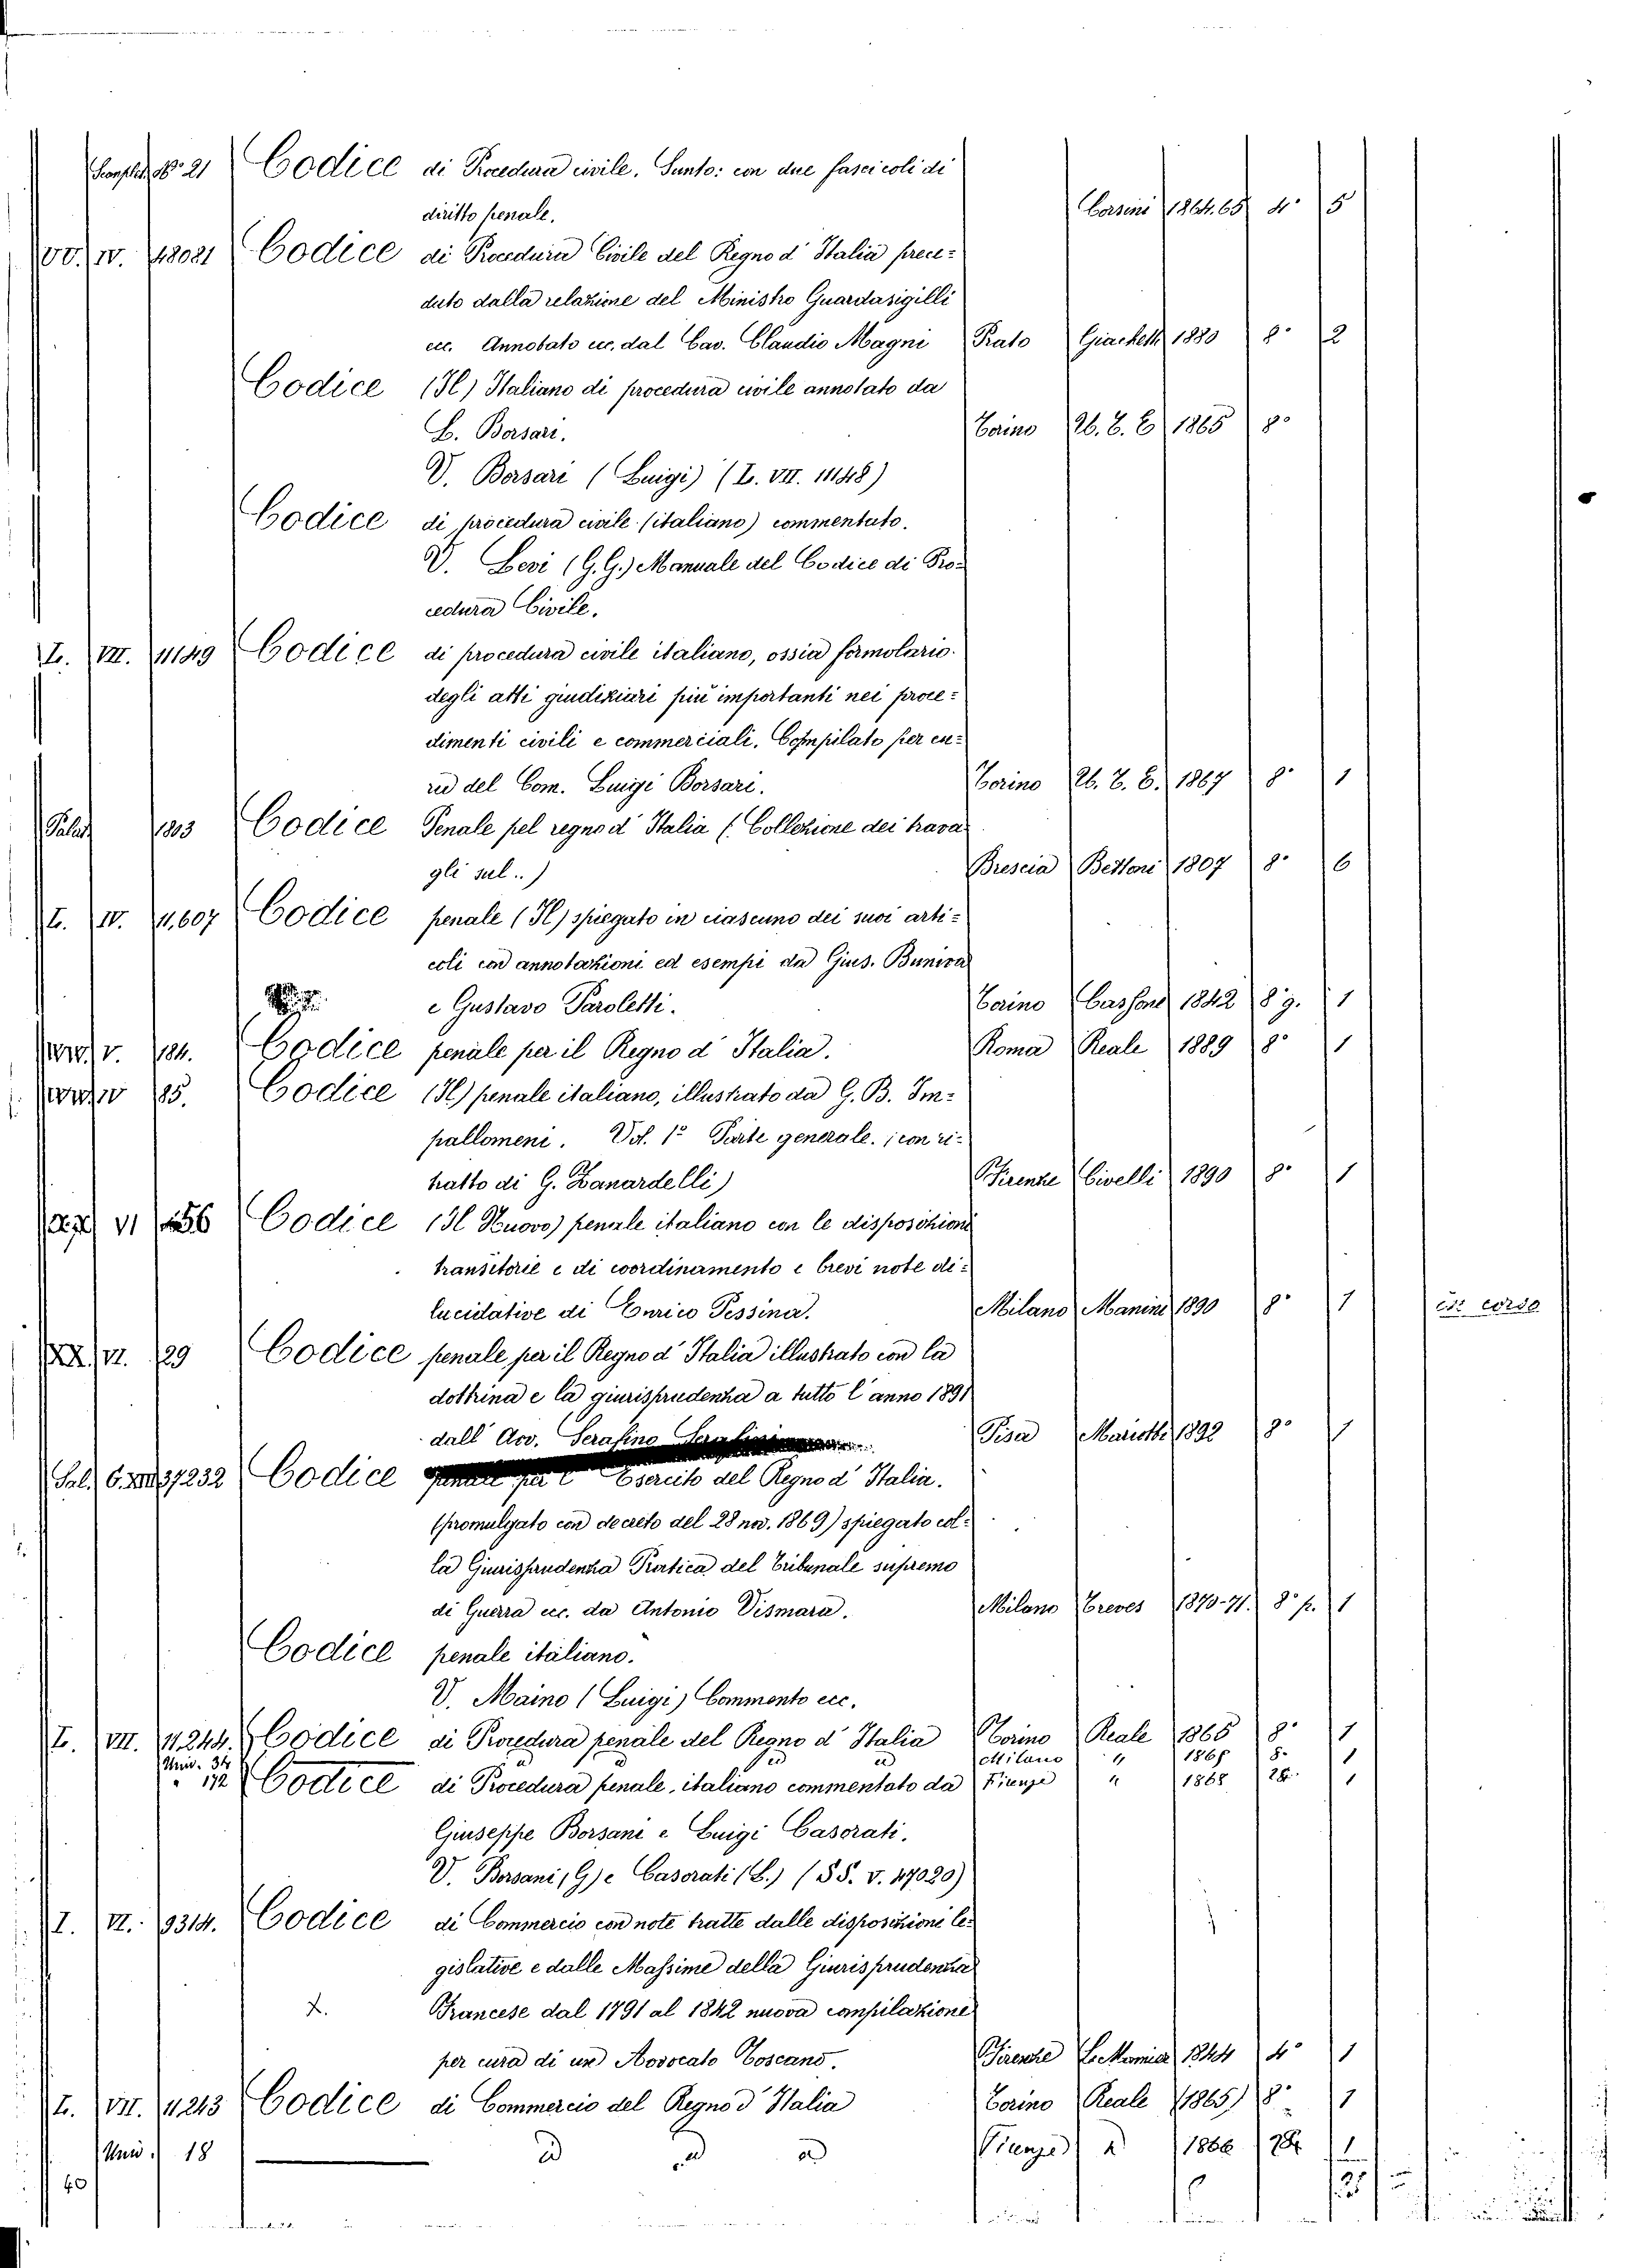 No. 21 Codice di Procedura civile. Sunto: con due fascicoli di
diritto penale. Corsini 1864.65 4º 5
IV. 48021 Codice di Procedura Civile del Regno d'Italia prece=
duto dalla relazione del Ministro Guardasigilli
ecc. Annotato ecc. dal Cav. Claudio Magni Prato Giachetti 1880 8º 2
Codice (Il) Italiano di procedura civile annotato da
L. Borsari. Torino U. T. E. 1865 8º
V. Borsari (Luigi) (L. VII. 11148)
Codice di procedura civile (italiano) commentato.
V. Levi (G. G.) Manuale del Codice di Pro=
cedura Civile.
L. VII. 11149 Codice di procedura civile italiano, ossia formolario
degli atti giudiziari più importanti nei proce=
dimenti civili e commerciali. Compilato per cu=
ra del Com. Luigi Borsari. Torino U. T. E. 1867 8º 1
Palat 1803 Codice Penale pel regno d'Italia (Collezione dei trava
gli sul..) Brescia Bettoni 1807 8º 6
L. IV. 11,607 Codice penale (Il) spiegato in ciascuno dei suoi arti=
coli con annotazioni ed esempi da Gius. Buniva
e Gustavo Paroletti. Torino Cassone 1842 8º g. 1
V. 184. Codice penale per il Regno d'Italia. Roma Reale 1889 8º 1
IV 185. Codice (Il) penale italiano, illustrato da G. B. Im=
pallomeni. Vol. 1º Parte generale. (con ri=
tratto di G. Zanardelli) Firenze Civelli 1890 8º 1
VI 456 Codice (Il Nuovo) penale italiano con le disposizioni
transitorie e di coordinamento e brevi note di=
lucidative di Enrico Pessina. Milano Manini 1890 8º 1 in corso
XX. VI. 129 Codice penale per il Regno d'Italia illustrato con la
dottrina e la giurisprudenza a tutto l'anno 1891
dall'Avv. Serafino Pisa Mariotti 1892 8º 1
Sal. 37232 Codice penale per l'Esercito del Regno d'Italia.
(promulgato con decreto del 28 nov. 1869) spiegato col=
la Giurisprudenza Pratica del Tribunale supremo
di Guerra ecc. da Antonio Vismara. Milano Treves 1870-71. 8º p. 1
Codice penale italiano.
V. Maino (Luigi) Commento ecc.
L. VII. 11,244. Codice di Procedura penale del Regno d'Italia Torino Reale 1865 8º 1
Univ. 34 id id id Milano " 1865 8º 1
" 172 Codice di Procedura penale, italiano commentato da Firenze " 1868 24. 1
Giuseppe Borsani e Luigi Casorati.
V. Borsani (G) e Casorati (L.) (SS. V. 47020)
I. VI. 9314. Codice di Commercio con note tratte dalle disposizioni le=
gislative e dalle Massime della Giurisprudenza
X. Francese dal 1791 al 1842 nuova compilazione
per cura di un Avvocato Toscano. Firenze Le Monnier 1844 4º 1
L. VII. 11243 Codice di Commercio del Regno d'Italia Torino Reale (1865) 8º 1
Univ. 18 id id id Firenze id 1866 24 1
60